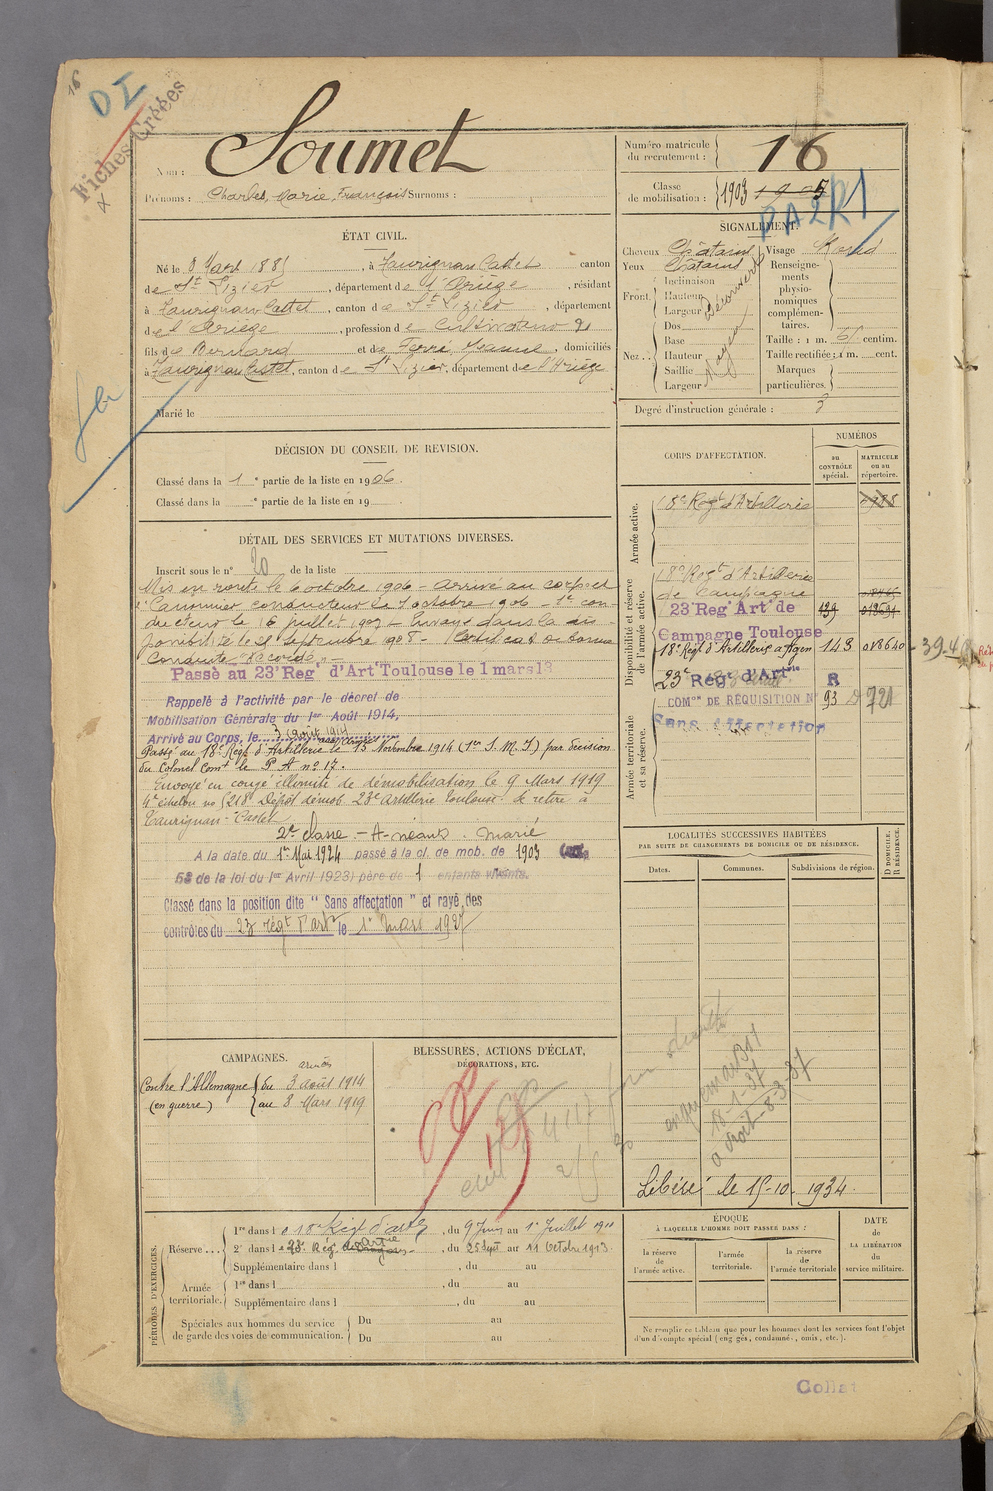 16
DI
Fiches Créées
Nom : Soumet
Prénoms : Charles, Marie, François Surnoms :
Numéro matricule du recrutement : 16
Classe de mobilisation : 1903 1905
PA2R1
ÉTAT CIVIL.
Né le 8 Mars 1885, à Taurignan Castet canton
de St Lizier, département de l'Ariège, résidant
à Taurignan Castet, canton de St Lizier, département
de l'Ariège, profession de Cultivateur
fils de Bernard et de Ferré, Jeanne, domiciliés
à Taurignan Castet, canton de St Lizier, département de l'Ariège
Marié le
SIGNALEMENT.
Cheveux Châtains Visage Rond
Yeux Châtains
Front. Inclinaison Hauteur Largeur Découvert
Nez. Dos Base Hauteur Saillie Largeur Moyen
Renseignements physionomiques complémentaires.
Taille : 1 m. centim.
Taille rectifiée : 1 m. cent.
Marques particulières.
Degré d'instruction générale : 3
DÉCISION DU CONSEIL DE REVISION.
Classé dans la 1e partie de la liste en 1906.
Classé dans la e partie de la liste en 19
DÉTAIL DES SERVICES ET MUTATIONS DIVERSES.
Inscrit sous le n° 20 de la liste
Mis en route le 6 octobre 1906 – arrivé au corps et
2e Canonnier conducteur le 7 octobre 1906 – 1er con
ducteur le 16 juillet 1907 – Envoyé dans la dis
ponibilité le septembre 1908 – Certificat de bonne
Conduite "Accordé" –
Passé au 23e Reg' d'Art Toulouse le 1 mars 13
Rappelé à l'activité par le décret de
Mobilisation Générale du 1er Août 1914,
Arrivé au Corps, le 3 août 1914
Passé au 18e Régt d'Artillerie le 15 Novembre 1914 (1er S.M.I) par décision
du Colonel Comt le P A n° 17.
Envoyé en congé illimité de démobilisation le 9 Mars 1919
4e échelon no 5218 Dépôt démob 23e Artillerie Toulouse se retire à
Taurignan-Castet
2e classe – A néant. marié
A la date du 1er Mai 1924 passé à la cl. de mob. de 1903
58 de la loi du 1er Avril 1923) père de 1 enfants vivants.
Classé dans la position dite "Sans affectation" et rayé des
contrôles du 23 régt d'art le 1er mars 1927
CORPS D'AFFECTATION.
NUMÉROS
au CONTRÔLE spécial.
MATRICULE ou au répertoire.
Armée active.
18e Regt d'Artillerie
Disponibilité et réserve de l'armée active.
18e Regt d'Artillerie
de Campagne
23 Reg' Art' de 139
Campagne Toulouse
18e Régt d'Artillerie à Agen 143 018640
23e Régt d'Artie R
COMon DE RÉQUISITION N° 93 721
Sans affectation
Armée territoriale et sa réserve.
LOCALITÉS SUCCESSIVES HABITÉES
PAR SUITE DE CHANGEMENTS DE DOMICILE OU DE RÉSIDENCE.
Dates.
Communes.
Subdivisions de région.
D DOMICILE.
R RÉSIDENCE.
18-1-37
a droit 8-3-37
Libéré le 15-10-1934.
CAMPAGNES.
armées
Contre l'Allemagne (en guerre) du 3 août 1914
au 8 Mars 1919
BLESSURES, ACTIONS D'ÉCLAT,
DÉCORATIONS, ETC.
PÉRIODES D'EXERCICES.
Réserve
1re dans l e 18e Régt d'artie, du 9 Juin au 1er Juillet 1910
2e dans l e 23e Rég. d'Artie, du 25 Sept au 11 Octobre 1913.
Supplémentaire dans l , du au
Armée territoriale.
1re dans l , du au
Supplémentaire dans l , du au
Spéciales aux hommes du service de garde des voies de communication.
Du au
Du au
ÉPOQUE
À LAQUELLE L'HOMME DOIT PASSER DANS :
la réserve de l'armée active.
l'armée territoriale.
la réserve de l'armée territoriale
DATE
de
LA LIBÉRATION
du
service militaire.
Ne remplir ce tableau que pour les hommes dont les services font l'objet
d'un décompte spécial (engagés, condamnés, omis, etc.).
Collat